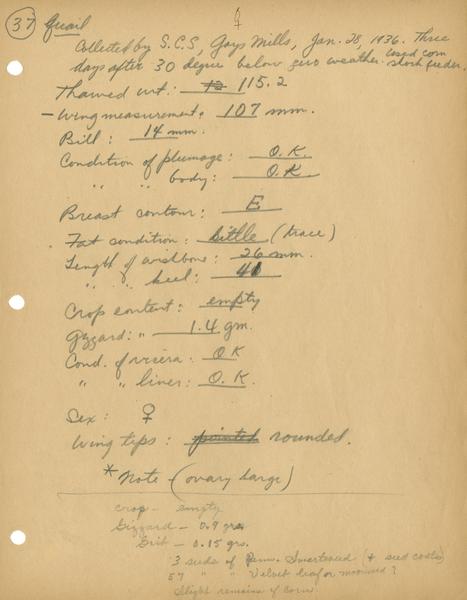 37 Quail ♀
Collected by S.C.S, Gays Mills, Jan. 28, 1936. Three
days after 30 degree below zero weather. Used corn shock feeder.
Thawed wt: 115.2
- Wing measurement: 107 mm.
Bill: 14 mm.
Condition of plumage: O.K.
" " body: O.K.
Breast contour: E
Fat condition: little (trace)
Length of wishbone: 26 mm.
" " keel: 41
Crop content: empty
Gizzard: " 1.4 gm.
Cond. of viscera: OK
" " liver: O.K.
Sex: ♀
Wing tips: pointed rounded.
* Note - (ovary large)
crop - empty
Gizzard - 0.9 grs.
Grit - 0.15 grs.
3 seeds of Penn. Smartweed (+ seed coats)
57 " " Velvet leaf or ?
Slight remains of corn.